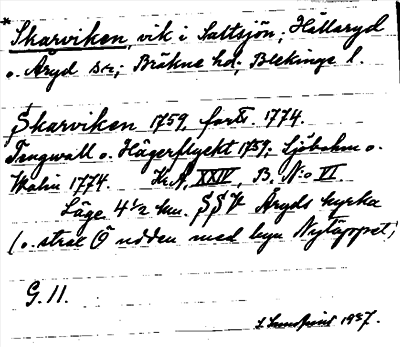 * Skarviken, vik i Saltsjön; Hällaryd
o. Åryd s:r; Bräkne hd; Blekinge l.
Skarviken 1759, 1774.
Tengwall o. Hägerflycht 1759; Ljbohm o.
Malin 1774. Kr.A, XXIV, B. N:o VI.
Läge 4 1/2 km. Åryds kyrka
(o. strax Ö udden med byn Nytäppet;
G. 11.
1937.